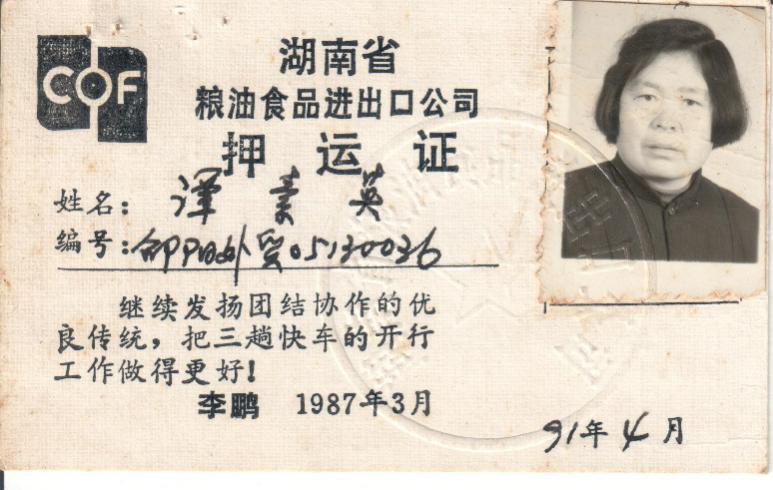 COF
湖南省
粮油食品进出口公司
押运证
姓名：谭素英
编号：邵阳外贸05130036
继续发扬团结协作的优
良传统，把三趟快车的开行
工作做得更好！
李鹏 1987年3月
91年4月